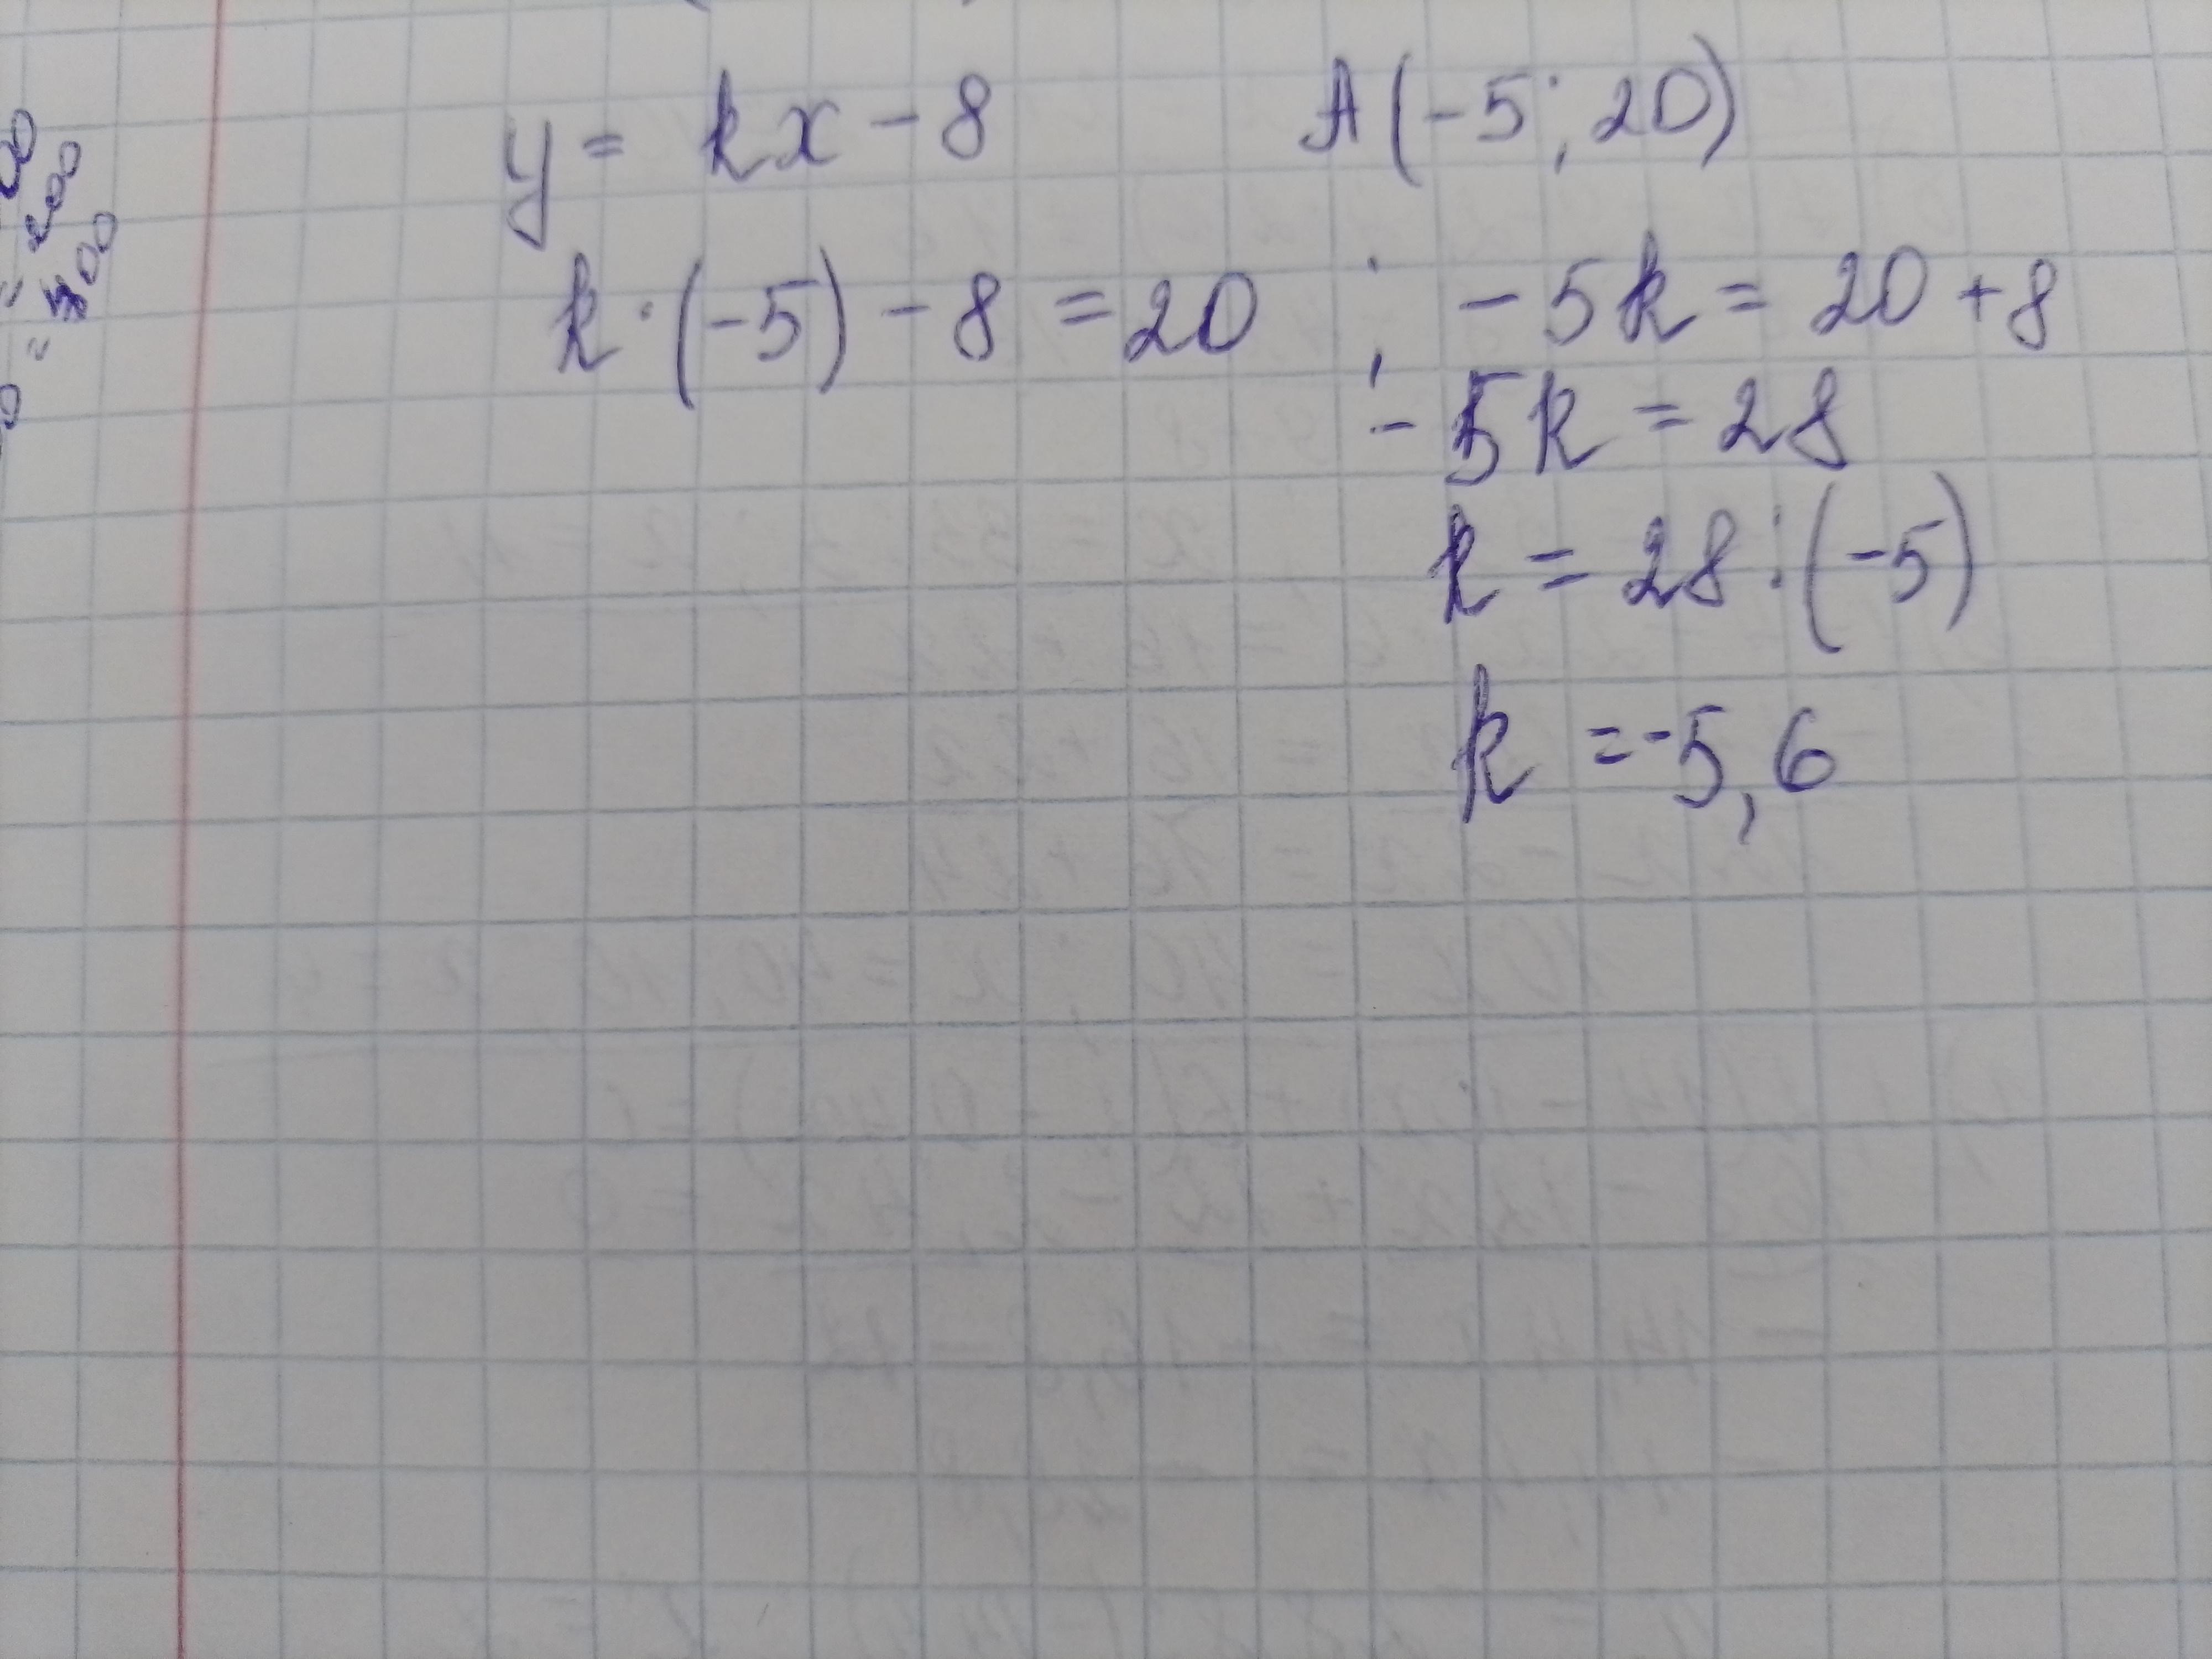 y = kx - 8    A(-5; 20)
k · (-5) - 8 = 20 ; -5k = 20 + 8
-5k = 28
k = 28 : (-5)
k = -5,6